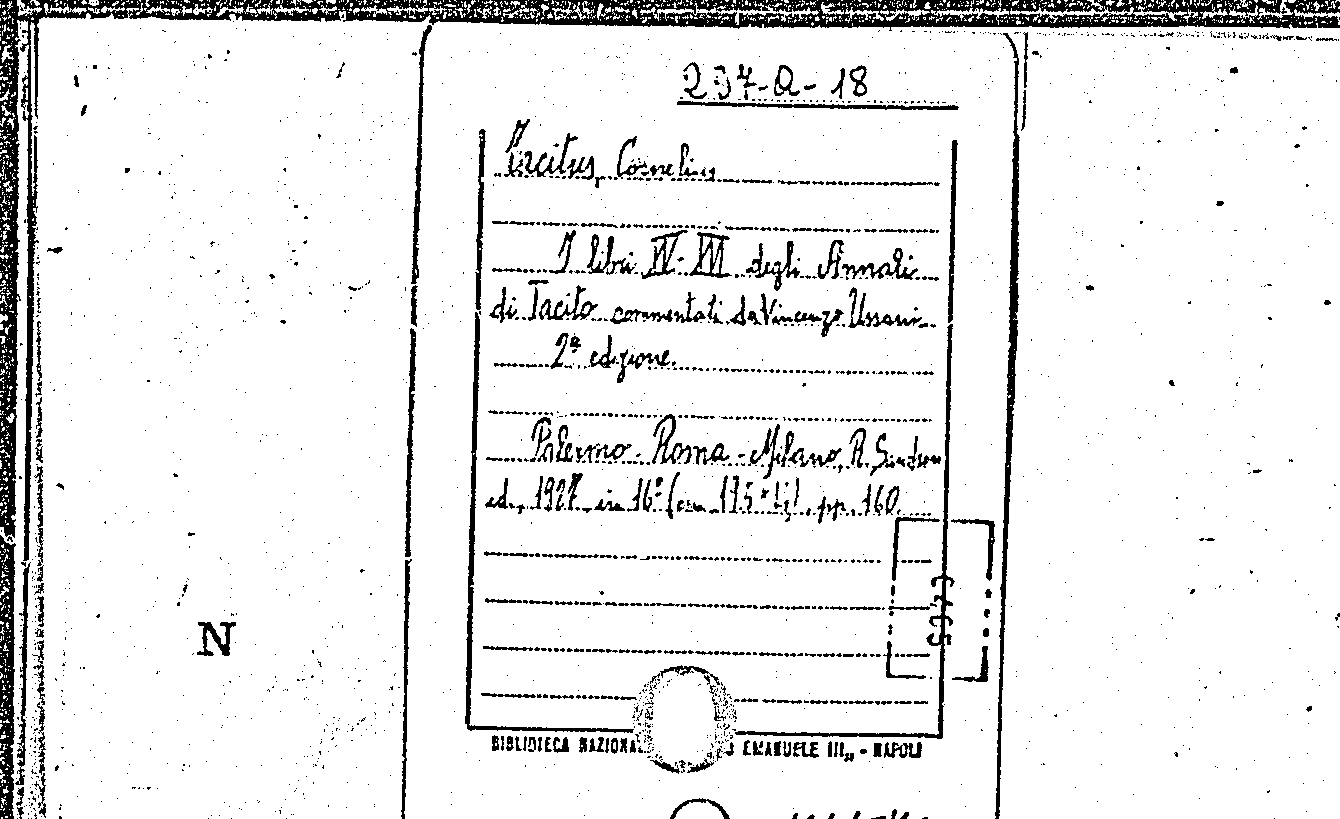 297-Q-18
Tacitus, Cornelius
I libri XV-XVI degli Annali
di Tacito commentati da Vincenzo Ussani
2ª edizione.
Palermo - Roma - Milano, R. Sandron
ed., 1927 in 16° (cm pp. 160.
N
BIBLIOTECA NAZIONA EMANUELE III„ - NAPOLI